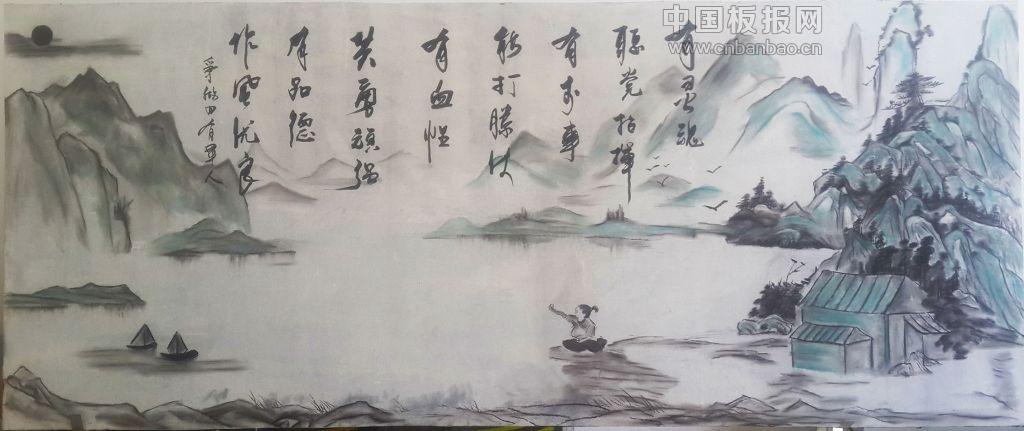 中国板报网
www.cnbanbao.cn
有灵魂
聽党指揮
有本事
能打勝仗
有血性
英勇頑强
有品德
作風优良
争做四有军人